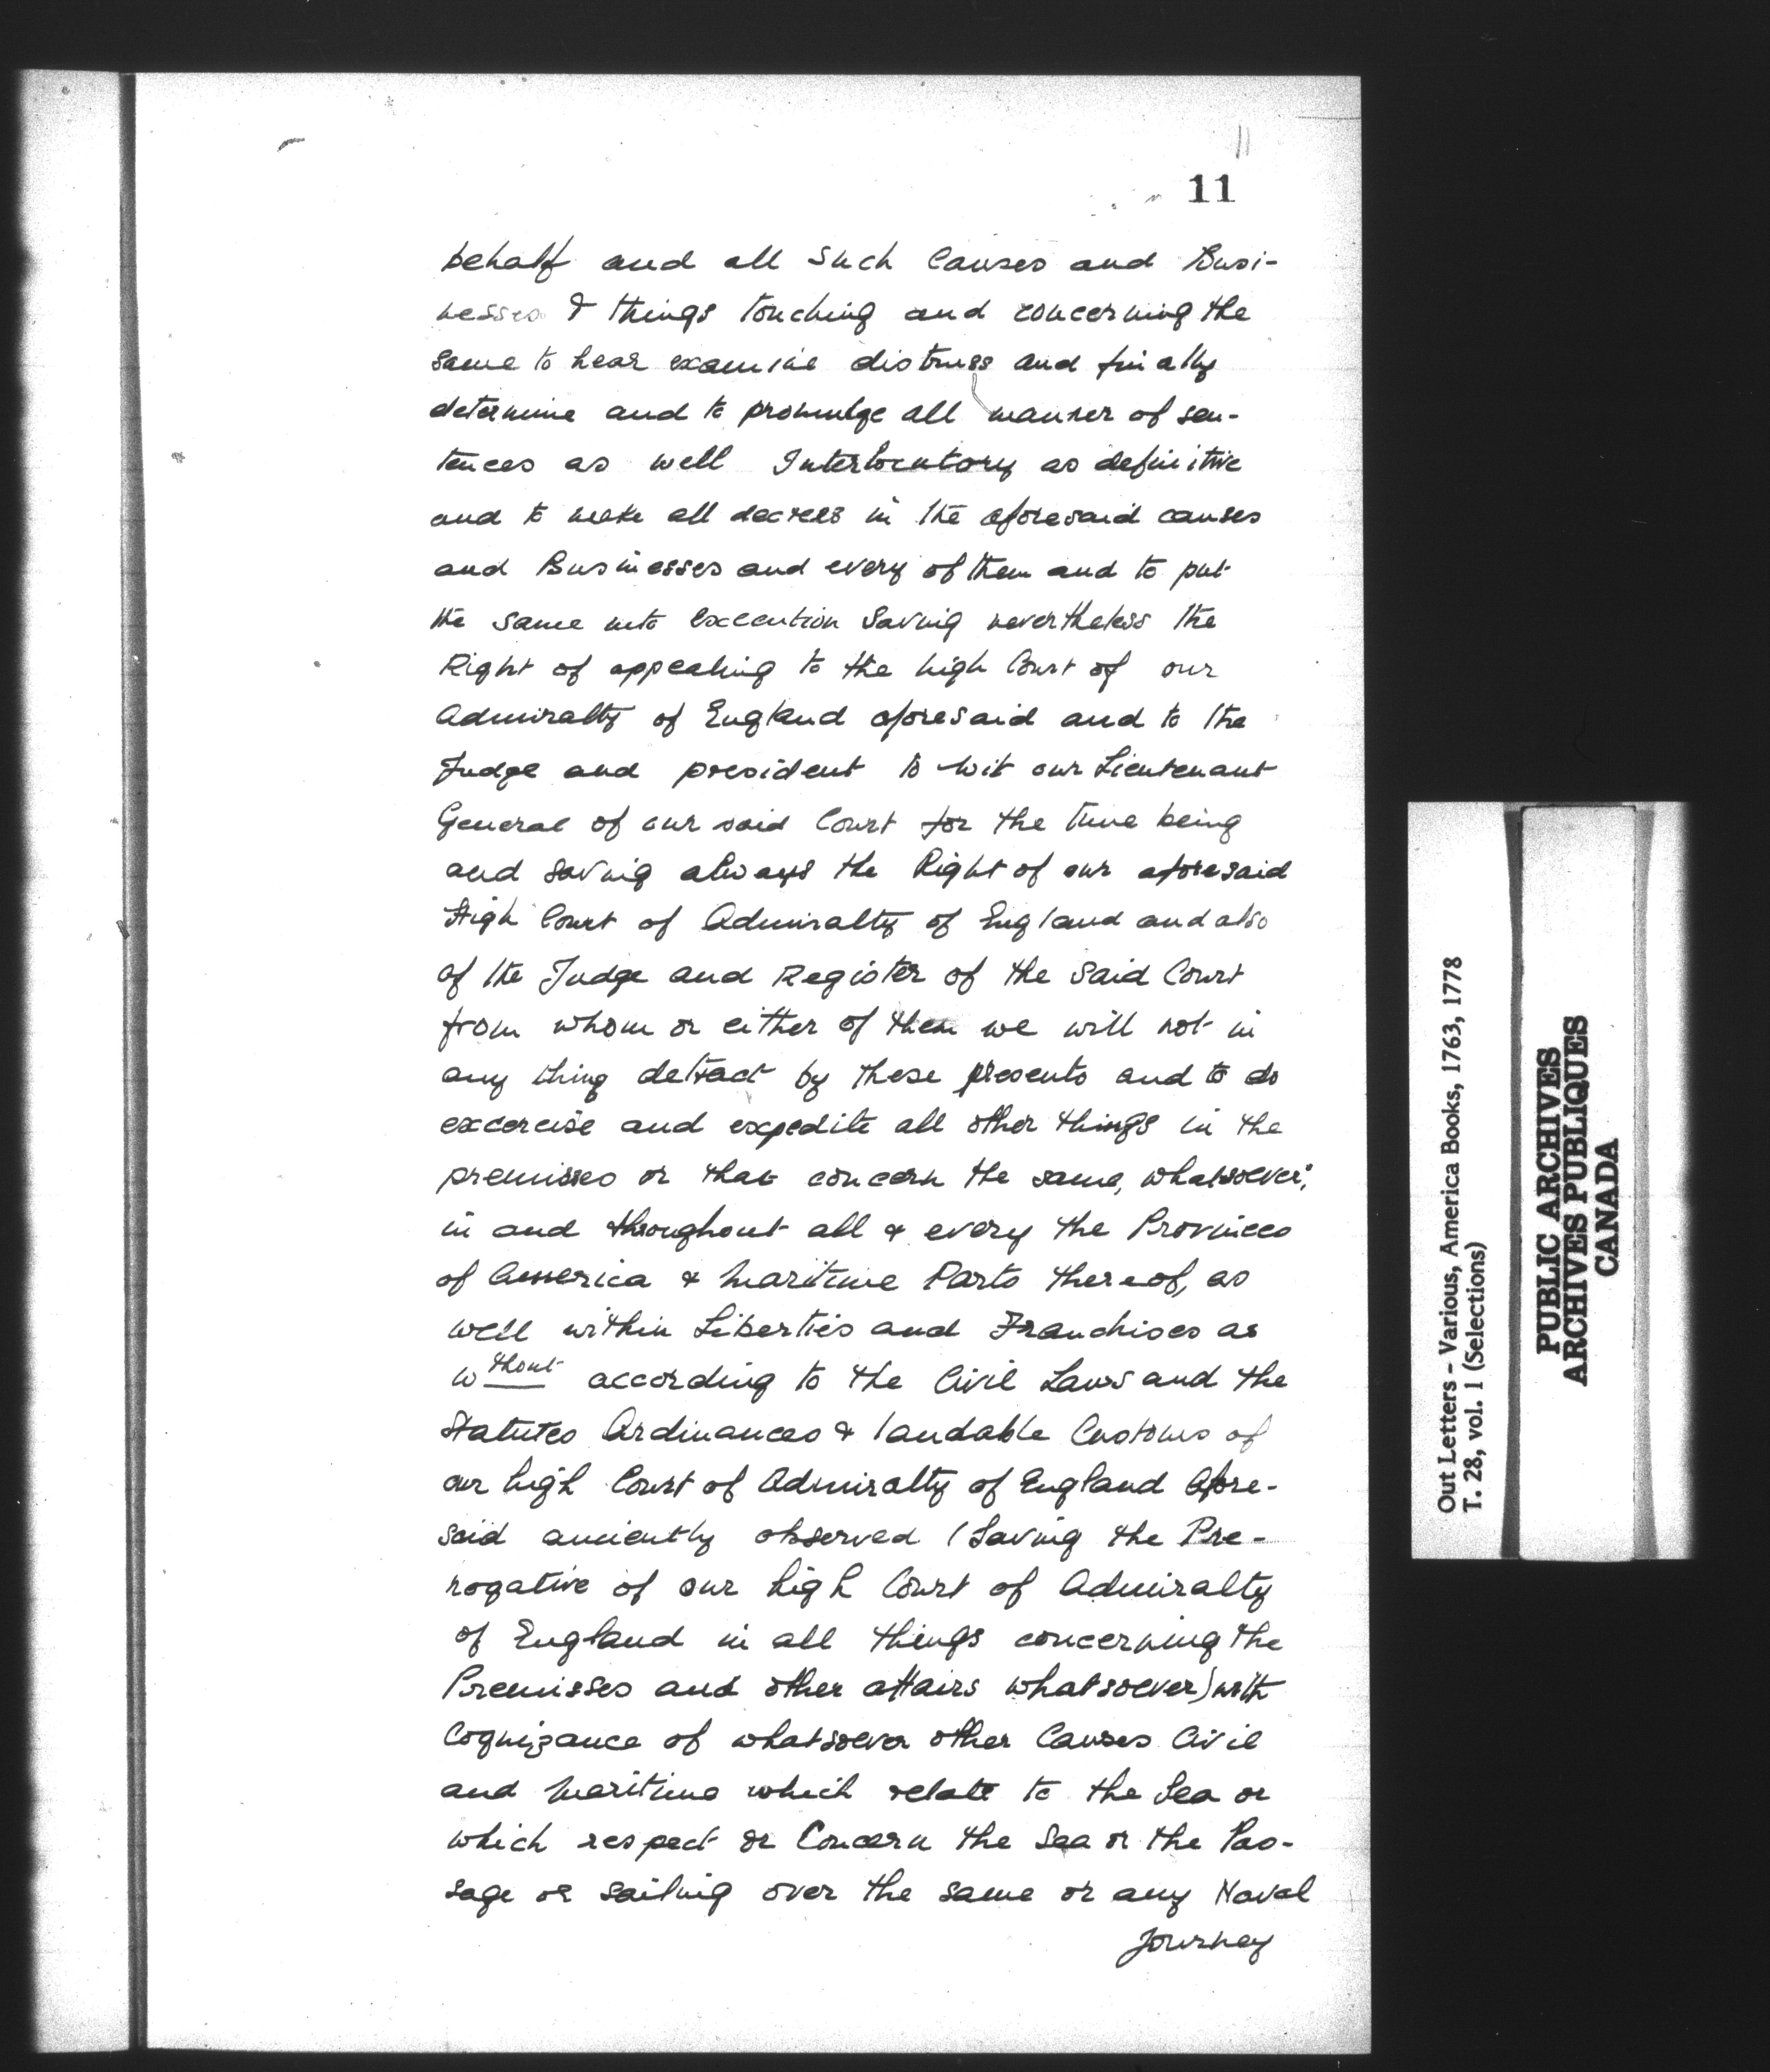 11
11
behalf and all Such Causes and Busi-
nesses & things touching and concerning the
same to hear examine distruss and finally
determine and to promulge all manner of sen-
tences as well Interlocutory as definitive
and to make all decrees in the aforesaid causes
and Businesses and every of them and to put
the same into Execution Saving nevertheless the
Right of appealing to the high Court of our
Admiralty of England aforesaid and to the
Judge and president to wit our Lieutenant
General of our said Court for the time being
and saving always the Right of our aforesaid
High Court of Admiralty of England and also
of the Judge and Register of the said Court
from whom or either of them we will not in
any thing detract by these presents and to do
excercise and expedite all other things in the
premisses or that concern the same, whatsoever;
in and throughout all & every the Provinces
of America & maritime Parts thereof, as
well within Liberties and Franchises as
without according to the Civil Laws and the
Statutes Ordinances & laudable Customs of
our high Court of Admiralty of England Afore-
said anciently observed (Saving the Pre-
rogative of our high Court of Admiralty
of England in all things concerning the
Premisses and other affairs whatsoever) with
Cognizance of whatsoever other Causes Civil
and maritime which relate to the Sea or
which respect or Concern the Sea or the Pas-
sage or sailing over the same or any Naval
Journey
Out Letters - Various, America Books, 1763, 1778
T. 28, vol. 1 (Selections)
PUBLIC ARCHIVES
ARCHIVES PUBLIQUES
CANADA